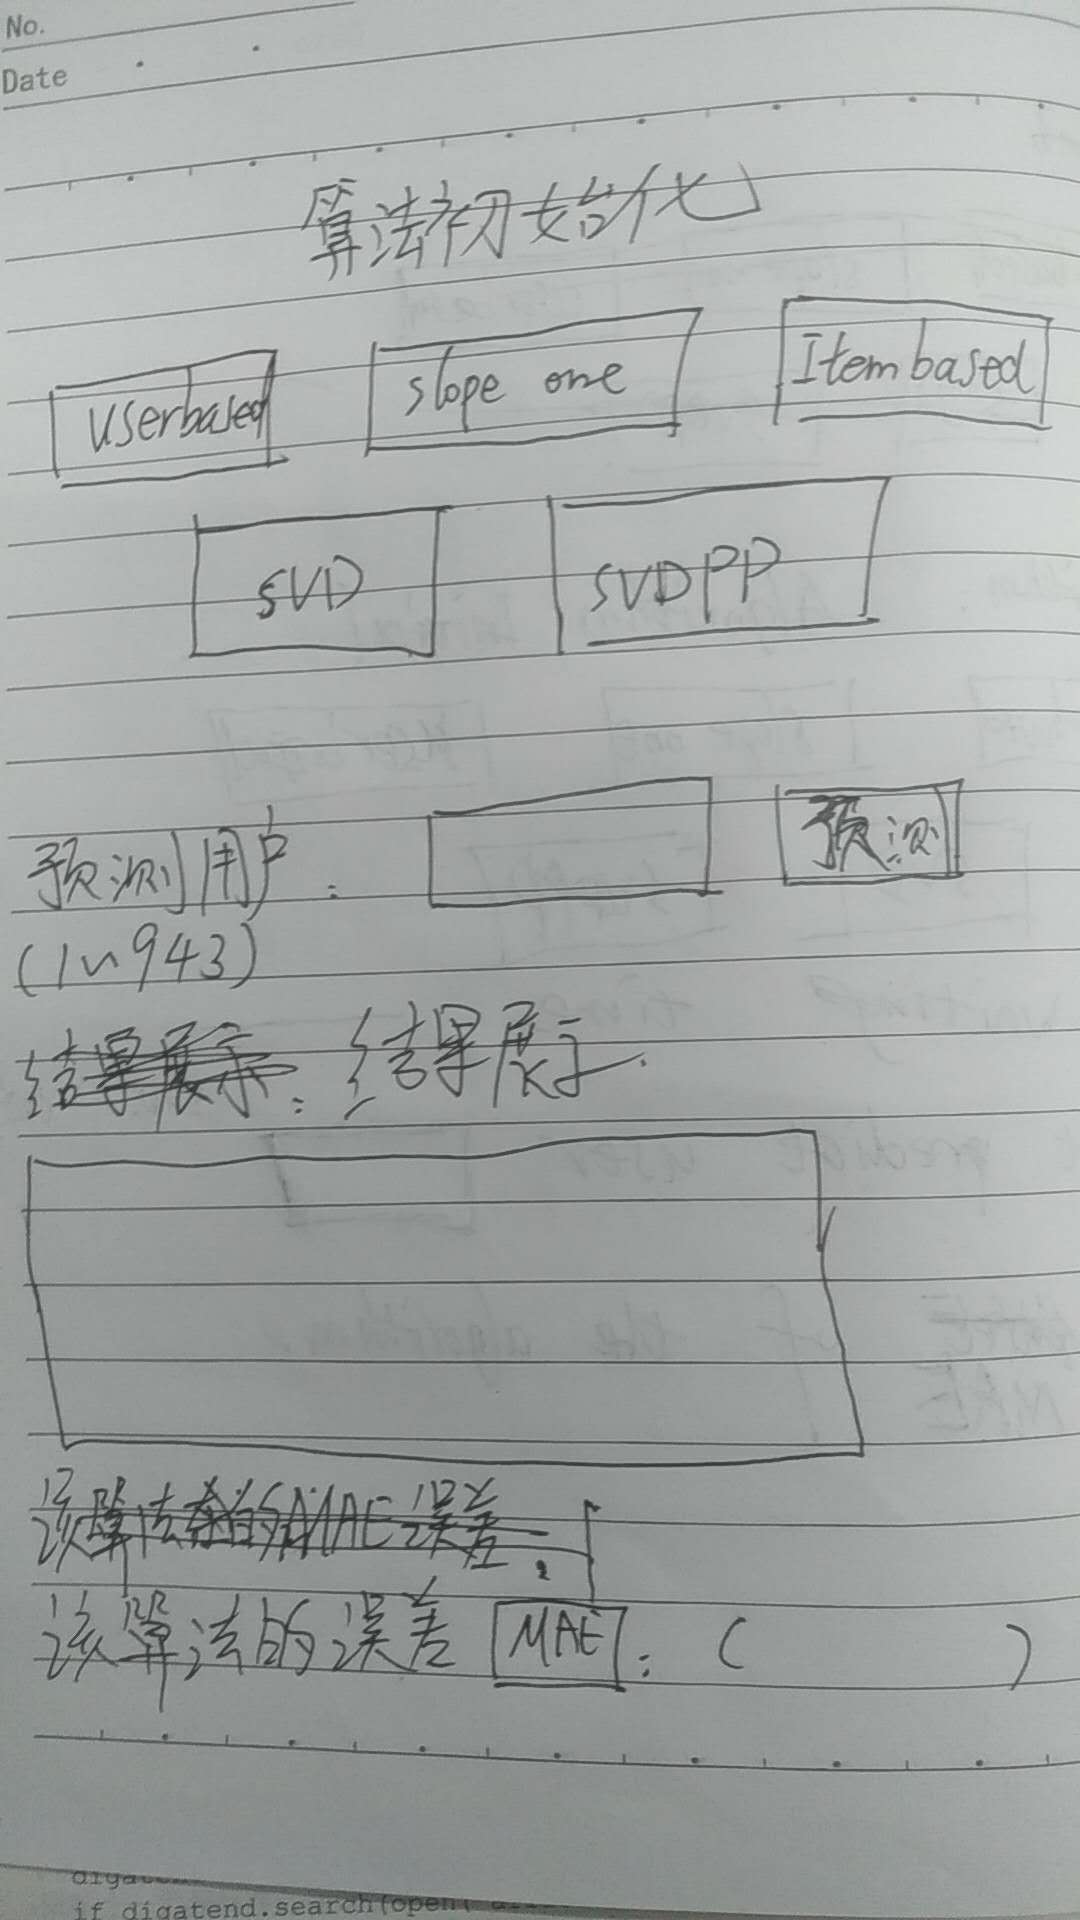 No.
Date
算法初始化
Userbased slope one Itembased
SVD SVDPP
预测用户: 预测
(1~943)
结果展示: 结果展示.
该算法的MAE误差:
该算法的误差 MAE: ( )
if digatend.search(open(